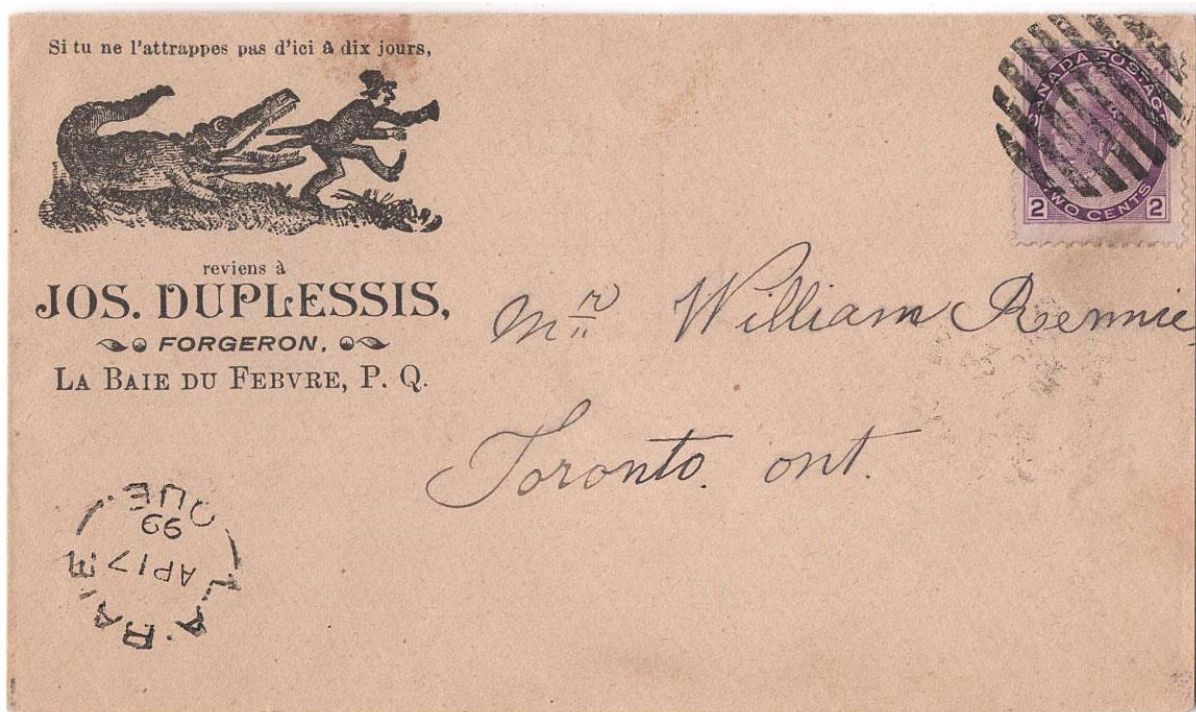 Si tu ne l'attrappes pas d'ici à dix jours,
reviens à
JOS. DUPLESSIS,
FORGERON,
LA BAIE DU FEBVRE, P. Q.
CANADA POSTAGE
2 TWO CENTS 2
Mr William Rennie,
Toronto. ont.
LA BAIE
AP 17
99
QUE.